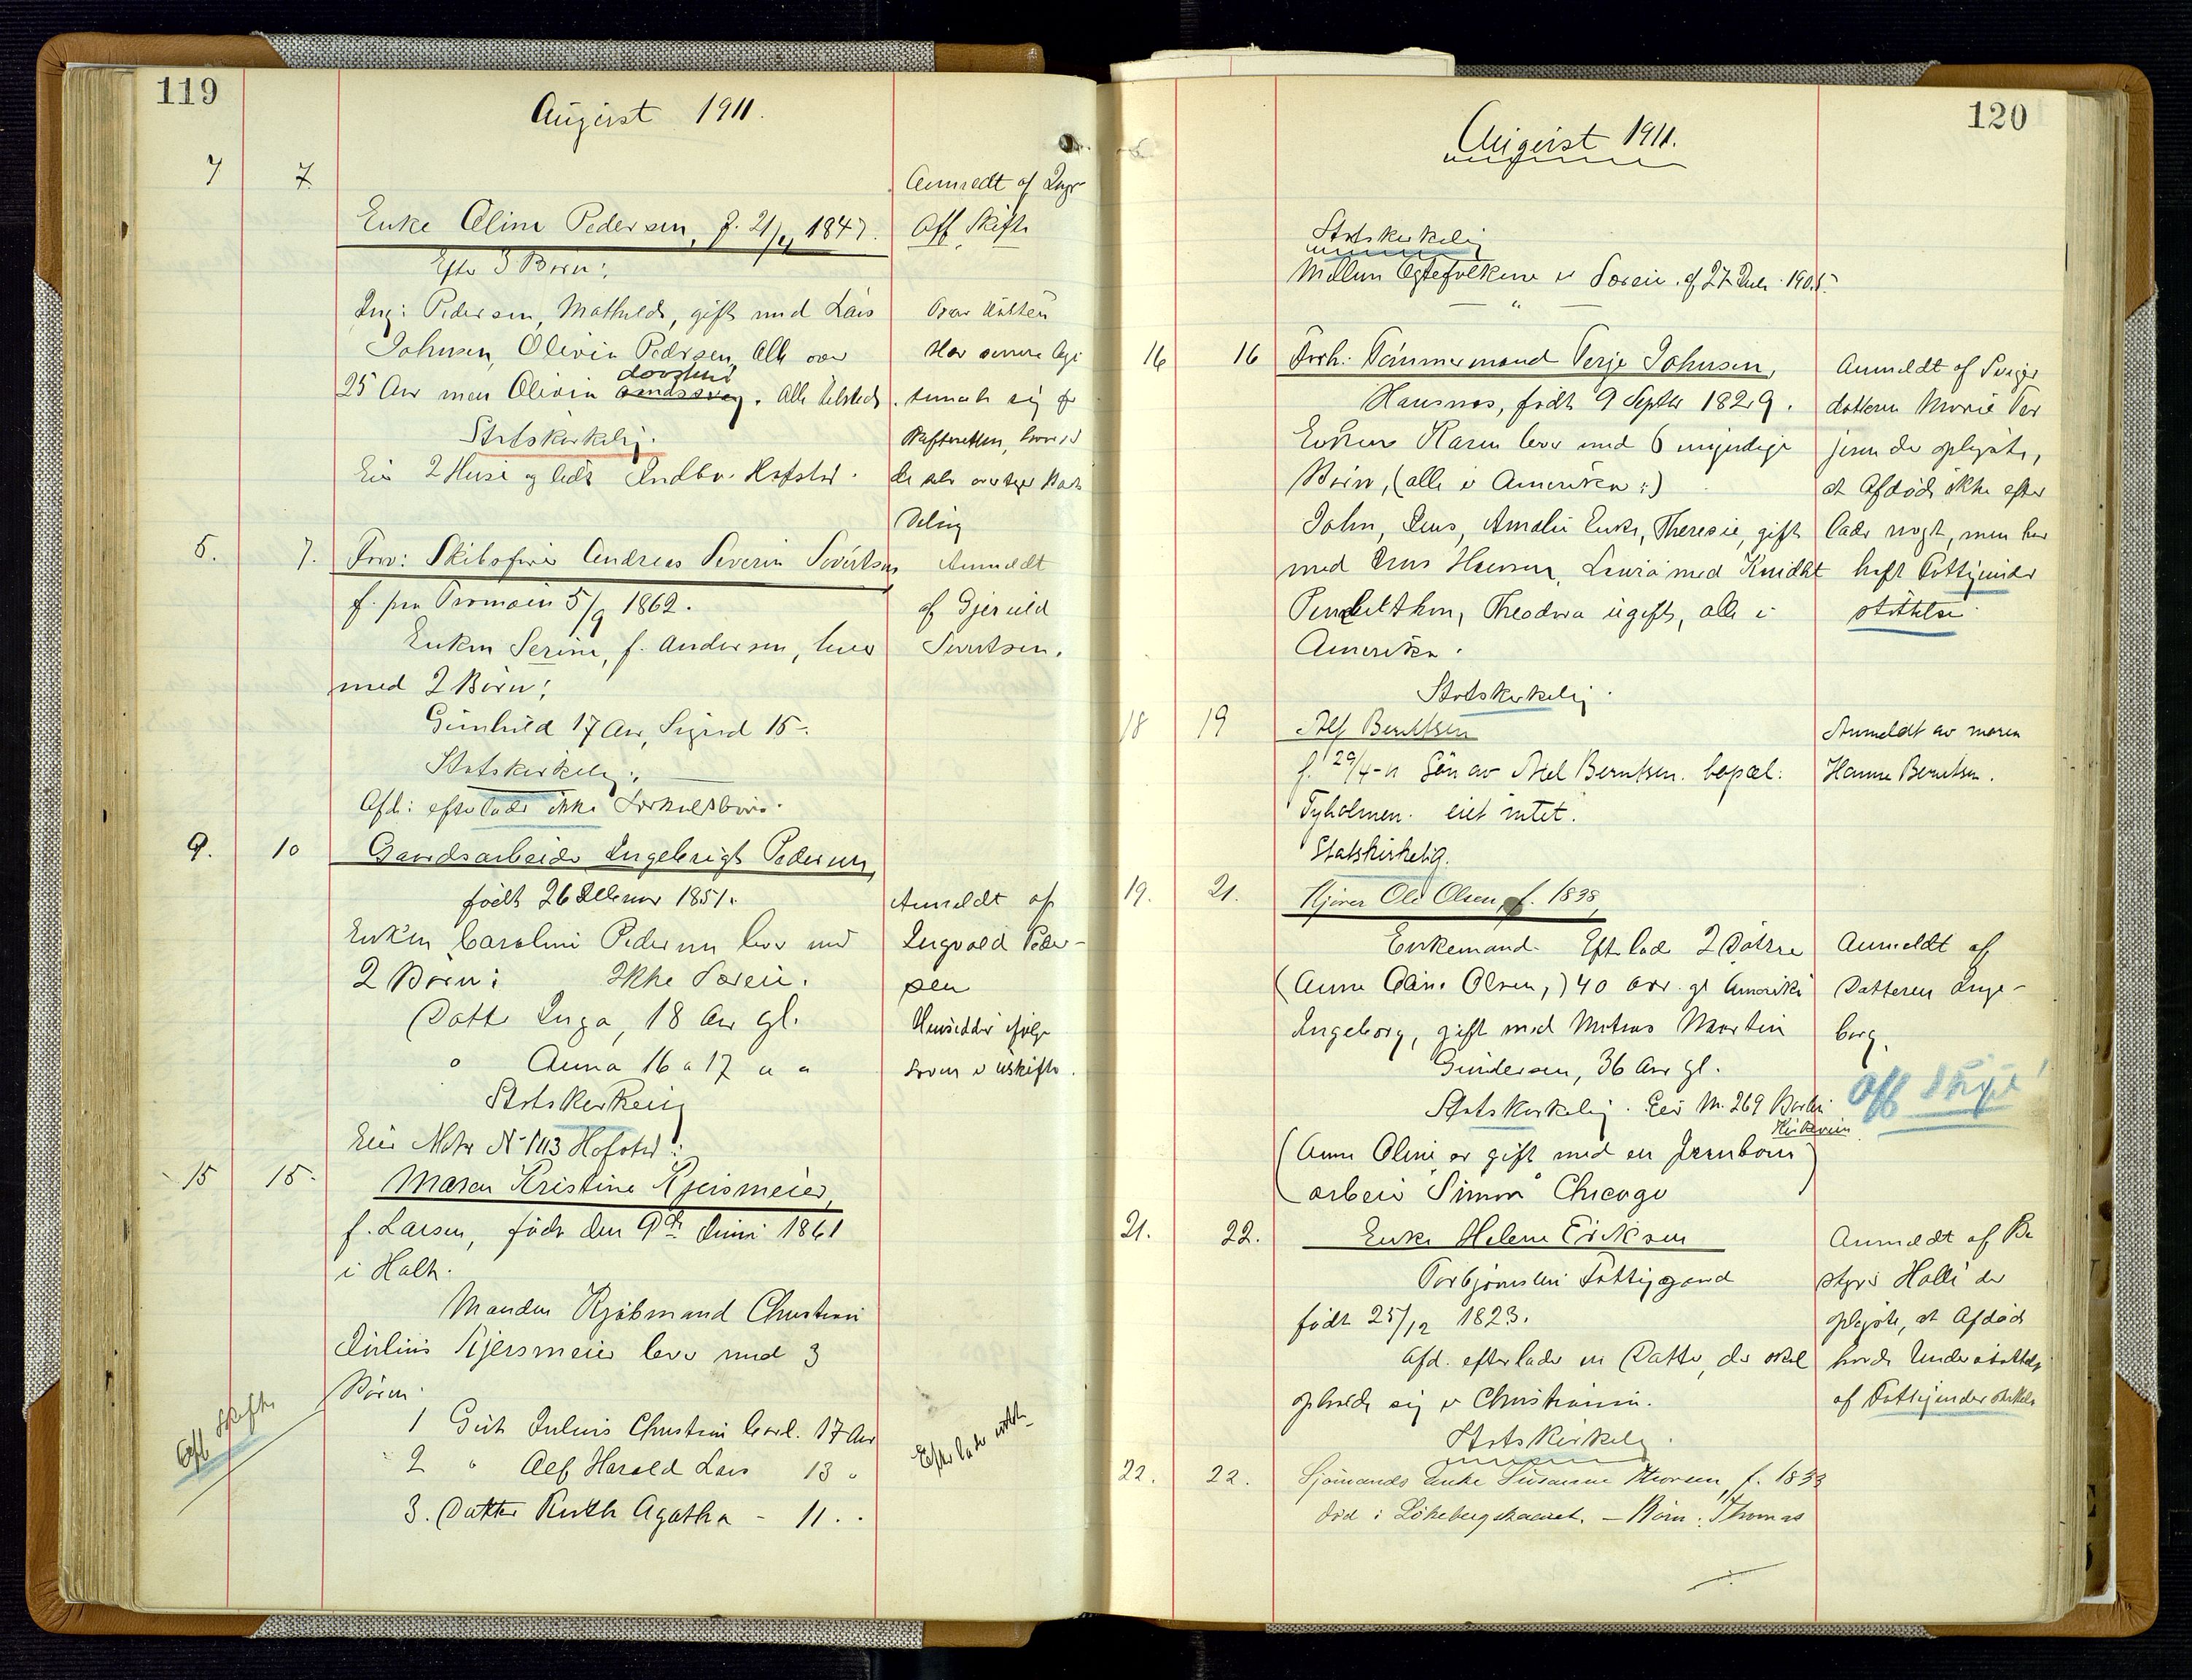 119
August 1911.
7
7.
Anmeldt af Ingr
Enke Oline Pedersen, f. 21/4 1847.
Off Skifte
Efter 3 Børn:
Ing: Pedersen, Mathilde, gift med Lars
Johnsen, Olivia Pedersen, Alle over
Har senere
25 Aar men Olivia døvstum. Alle tilsteds
Statskirkelig.
Skifteretten, hvorpaa
Eier 2 Huse og lidt Indbo. Hofsted.
Deling
5.
7.
Frav: Skibsfører Andreas Severin Sivertsen
Anmeldt
f. paa Tromøen 5/9 1862.
af Gjeruld
Enken Serine, f. Andersen, lever
Sivertsen.
med 2 Børn:
Gunhild 17 Aar, Sigurd 15 -.
Statskirkelig.
Afd: efterlader ikke Særkuldsbørn.
9.
10
Gaardsarbeider Ingebrigt Pedersen,
født 26 1851.
Anmeldt af
Enken Caroline Pedersen lever med
Ingvald Peder-
2 Børn: Ikke Særeie.
sen
Datter Inga, 18 Aar gl.
" Anna 16 a 17 " "
Statskirkelig
Eier Matr N- 1113 Hofsted.
15
15.
Maren Kristine Kjersmeier,
f. Larsen, født den 9de Juni 1861
i Holt.
Manden Kjøbmand Christian
Julius Kjersmeier lever med 3
Børn.
1 Gut Julius Christian Carl. 17 Aar
2 " Alf Harald Lars 13 "
3. Datter Ruth Agatha - 11. .
Off Skifte
Efterlader
120
August 1911.
Statskirkelig
Mellem Ægtefolkene er Særeie af 27 Juli 1905.
16
16
Forh: Tømmermand Terje Johnsen,
Anmeldt af Sviger
Hausnes, født 9 Septbr 1829.
datteren Marie Ter
Enken Karen lever med 6 myndige
jesen der oplyste,
Børn, (alle i Amerika:)
at Afdøde ikke efter
John, Jens, Amalie Enke, Theresie, gift
lader noget, men har
med Jens Hansen, Lovisa med Knidht
haft Fattigunder
Pendelthon, Theodora ugift, alle i
støttelse
Amerika.
Statskirkelig.
18
19
Alf Berntsen
Anmeldt av moren
f. 29/4-11 Søn av Axel Berntsen. bopæl:
Hanne Berntsen.
Tyholmen. eiet intet.
Statskirkelig.
19.
21.
Kjører Ole Olsen, f. 1838,
Enkemand. Efterlader 2 Døttre
Anmeldt af
(Anne Oline Olsen,) 40 Aar gl Amerika
Datteren Inge-
Ingeborg, gift med Mathias Martin
borg.
Gundersen, 36 Aar gl.
Off Skifte!
Statskirkelig. Eier M. 269
(Anne Oline er gift med en Jernbane
arbeider "Simon" Chicago)
21.
22.
Enke Helene Eriksen
Anmeldt af Be
Torbjørnsbu Fattiggaard
styrer Holli der
født 25/12 1823.
oplyste, at Afdøde
Afd. efterlader en Datter, der skal
havde Understøttelse
opholde sig i Christiania.
af Fattigunderstøttelse
Statskirkelig.
22.
22.
Sjømands Enke Susanne Thorsen, f. 1833
død i Løkebergskaaret. - Børn: Thomas